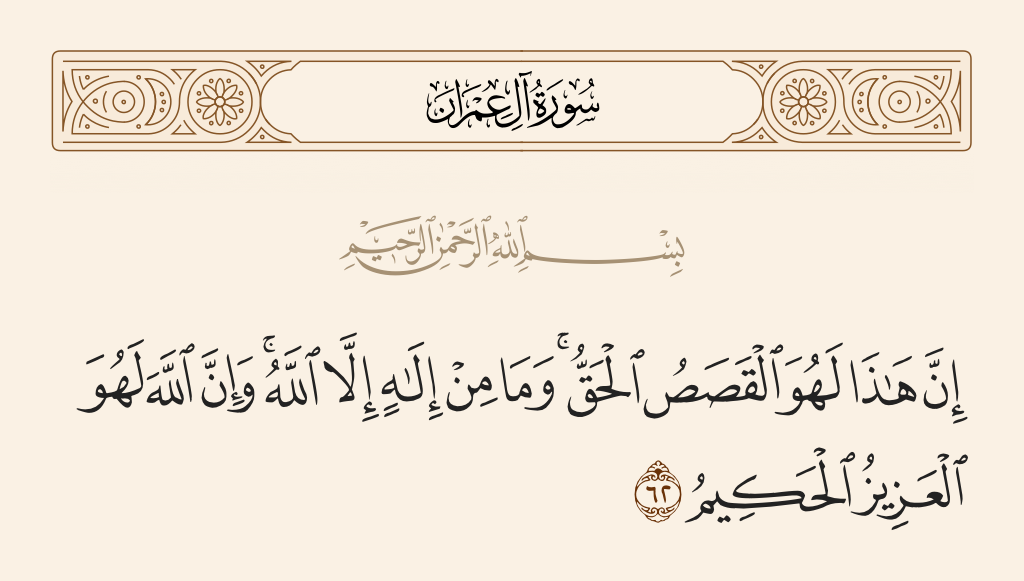 سُورَةُ آلِ عِمْرَان
بِسْمِ ٱللَّهِ ٱلرَّحْمَٰنِ ٱلرَّحِيمِ
إِنَّ هَٰذَا لَهُوَ ٱلْقَصَصُ ٱلْحَقُّ ۚ وَمَا مِنْ إِلَٰهٍ إِلَّا ٱللَّهُ ۚ وَإِنَّ ٱللَّهَ لَهُوَ
ٱلْعَزِيزُ ٱلْحَكِيمُ ٦٢